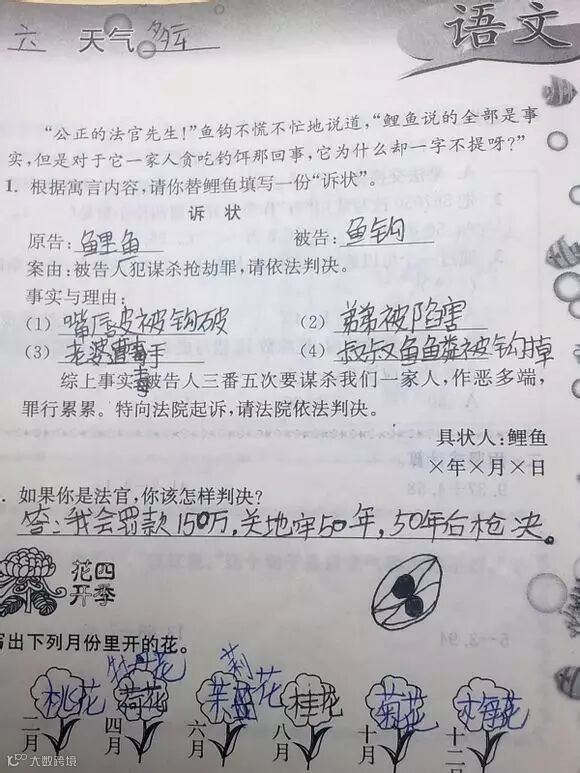 六 天气 多云 语文
“公正的法官先生!”鱼钩不慌不忙地说道,“鲤鱼说的全部是事
实,但是对于它一家人贪吃钓饵那回事,它为什么却一字不提呀?”
1. 根据寓言内容,请你替鲤鱼填写一份“诉状”。
诉 状
原告:鲤鱼 被告:鱼钩
案由:被告人犯谋杀抢劫罪,请依法判决。
事实与理由:
(1) 嘴唇皮被钩破 (2) 弟弟被陷害
(3) 老婆遭毒手 (4) 叔叔鱼鳞被钩掉
综上事实,被告人三番五次要谋杀我们一家人,作恶多端,
罪行累累。特向法院起诉,请法院依法判决。
具状人:鲤鱼
×年×月×日
. 如果你是法官,你该怎样判决?
答:我会罚款150万,关地牢50年,50年后枪决。
花四
开季
写出下列月份里开的花。
牡丹花 茉莉花
桃花 荷花 桂花 菊花 梅花
二月 四月 六月 八月 十月 十二月
大数跨境